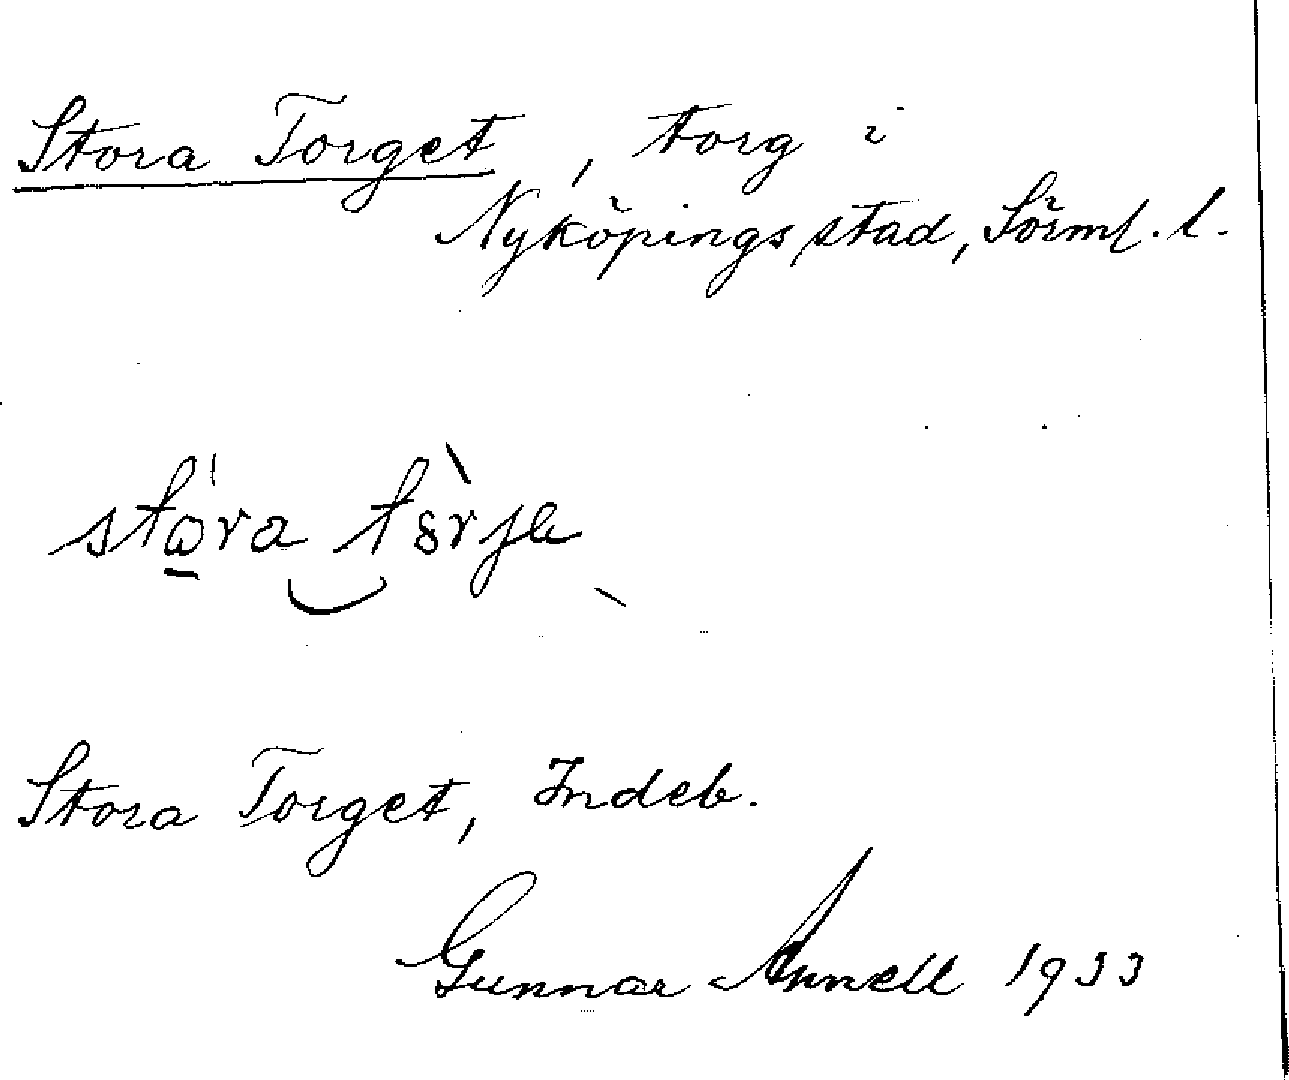 Stora Torget, torg i
Nyköpings stad, Sörml. l.
Stora Torget, Indeb.
Gunnar Annell 1933